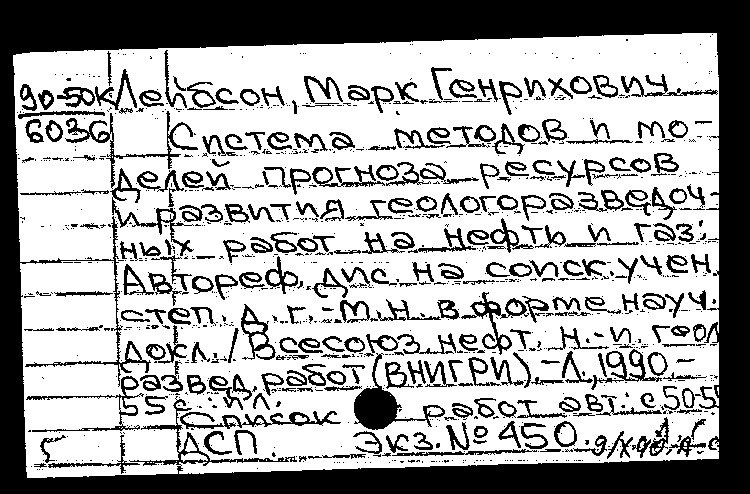 90-50К Лейбсон, Марк Генрихович.
6036 Система методов и мо-
делей прогноза ресурсов
и развития геологоразведоч-
ных работ на нефть и газ:
Автореф. дис. на соиск. учен.
степ. д. г.-м. н. в форме науч.
докл. / Всесоюз. нефт. н.-и. геол
развед. работ (ВНИГРИ). - Л., 1990. -
55 с.: ил.
Список работ авт.: с. 50-5
5 ДСП. Экз. № 450. 9/X-90